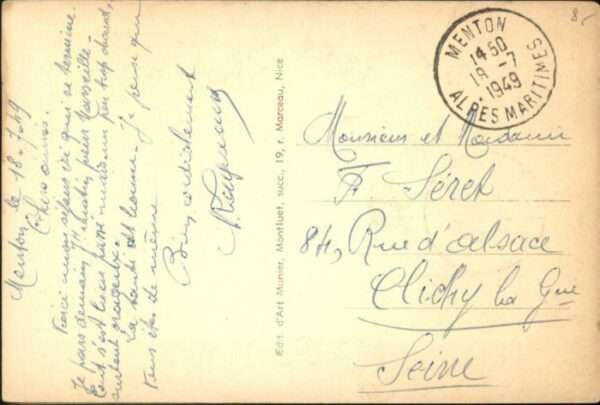 Menton le 18-7-49
Chers amis.
Voici mon séjour ici qui se termine.
Je pars demain matin pour Marseille !
Tout s'est bien passé, un peu trop chaud,
surtout orageux.
La santé est bonne. Je pense que
vous êtes de même
Bien cordialement
Edit. d'Art Munier, Montluet, succ, 19, r. Marceau, Nice
MENTON
14 50
18 -7
1949
ALPES MARITIMES
8
Monsieur et Madame
F. Séret
84, Rue d'alsace
Clichy la Gne
Seine